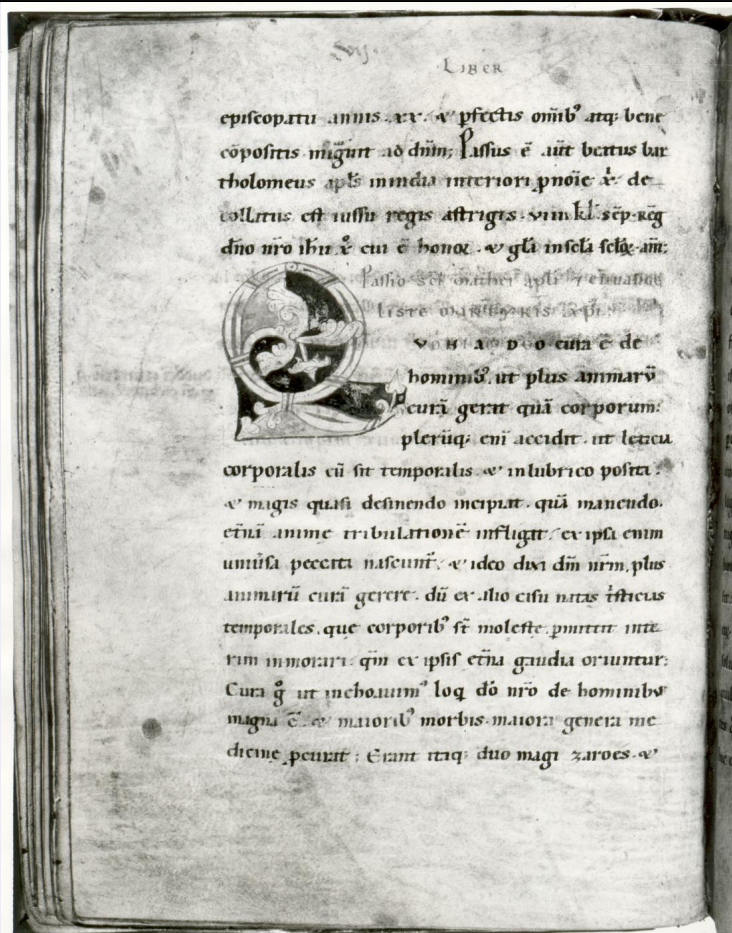 LIBER
episcopatu annis .xx. & p̄fectis omīb⁹ atq; bene
cōpositis migũit ad dn̄m; Passus ē aũt beatus bar
tholomeus apl̄s in india interiori p̱ noīe x̄. de
collatus est iussu regis astrigis. viiii kl̄. sēp. reg̃
dn̄o nr̄o ih̄u x̊ cui ē honor & gl̄a in scl̄a scl̄oꝝ. am̄;
Passio sc̄i mathei apl̄i & euuange
liste
Q VONIA D O cura ē de
hominib⁹. ut plus animarū
curā gerat quā corporum;
plerūq; enī accidit. ut letitia
corporalis cū sit temporalis. & in lubrico posita.
& magis quasi desinendo incipiat. quā manendo.
et̄nā anime tribulationē infligat. ex ipsa enim
uniũsa peccata nascunt̃. & ideo dixi dm̄ nr̄m, plus
animarū curā gerere. dū ex alio casu natas t̃sticias
temporales. que corporib⁹ st̄ moleste. p̱mittit inte
rim inmorari. qm̄ ex ipsis et̄na gaudia oriuntur;
Cura g̊ ut inchoauim⁹ loq̄ dō nr̄o de hominib⁹
magna ē. & maiorib⁹ morbis. maiora genera me
dicine p̱curat; Erant itaq; duo magi zaroes. &